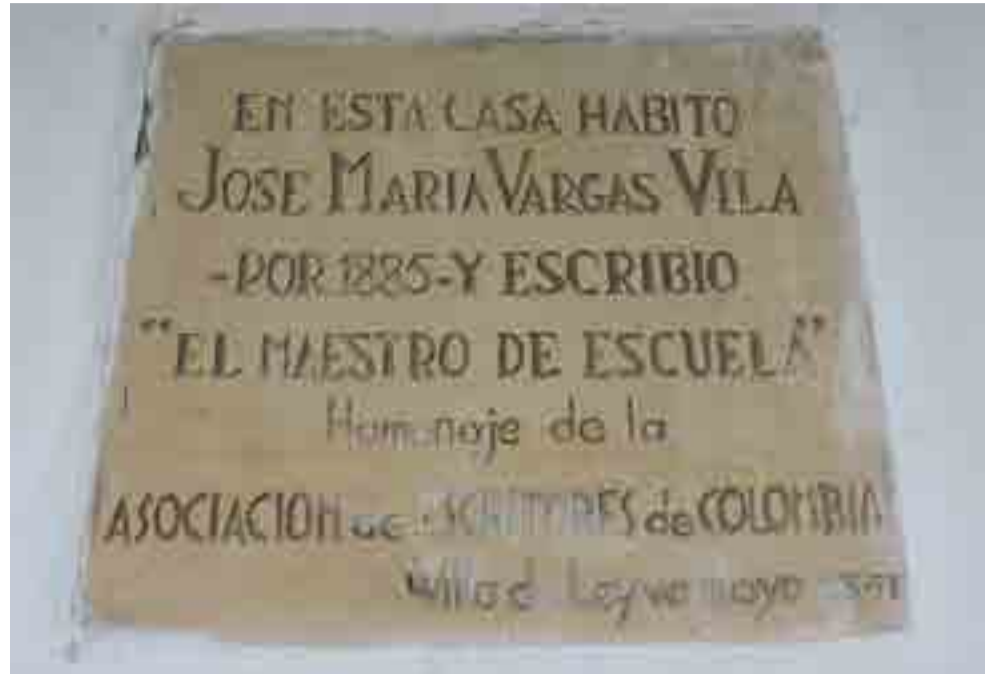 EN ESTA CASA HABITO
JOSE MARIA VARGAS VILA
-POR 1885-Y ESCRIBIO
"EL MAESTRO DE ESCUELA"
Homenaje de la
ASOCIACION de ESCRITORES de COLOMBIA
Villa de Leyva mayo